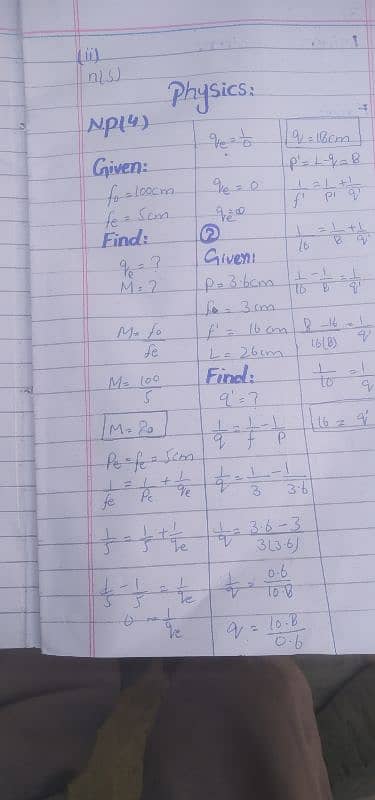 (ii)
n(s)
Physics:
NP(4)
Given:
fo = 100cm
fe = 5cm
Find:
qe = ?
M = ?
M = fo/fe
M = 100/5
M = 20
Pe = fe = 5cm
1/fe = 1/Pe + 1/qe
1/5 = 1/5 + 1/qe
1/5 - 1/5 = 1/qe
0 = 1/qe
qe = 1/0
qe = 0
qe = ∞
②
Given:
P = 3.6cm
fo = 3cm
f' = 16cm
L = 26cm
Find:
q' = ?
1/q = 1/f - 1/P
1/q = 1/3 - 1/3.6
1/q = 3.6-3/3(3.6)
1/q = 0.6/10.8
q = 10.8/0.6
q = 18cm
P' = L-q = 8
1/f' = 1/P' + 1/q'
1/16 = 1/8 + 1/q'
1/16 - 1/8 = 1/q'
8-16/16(8) = 1/q'
16 = q'